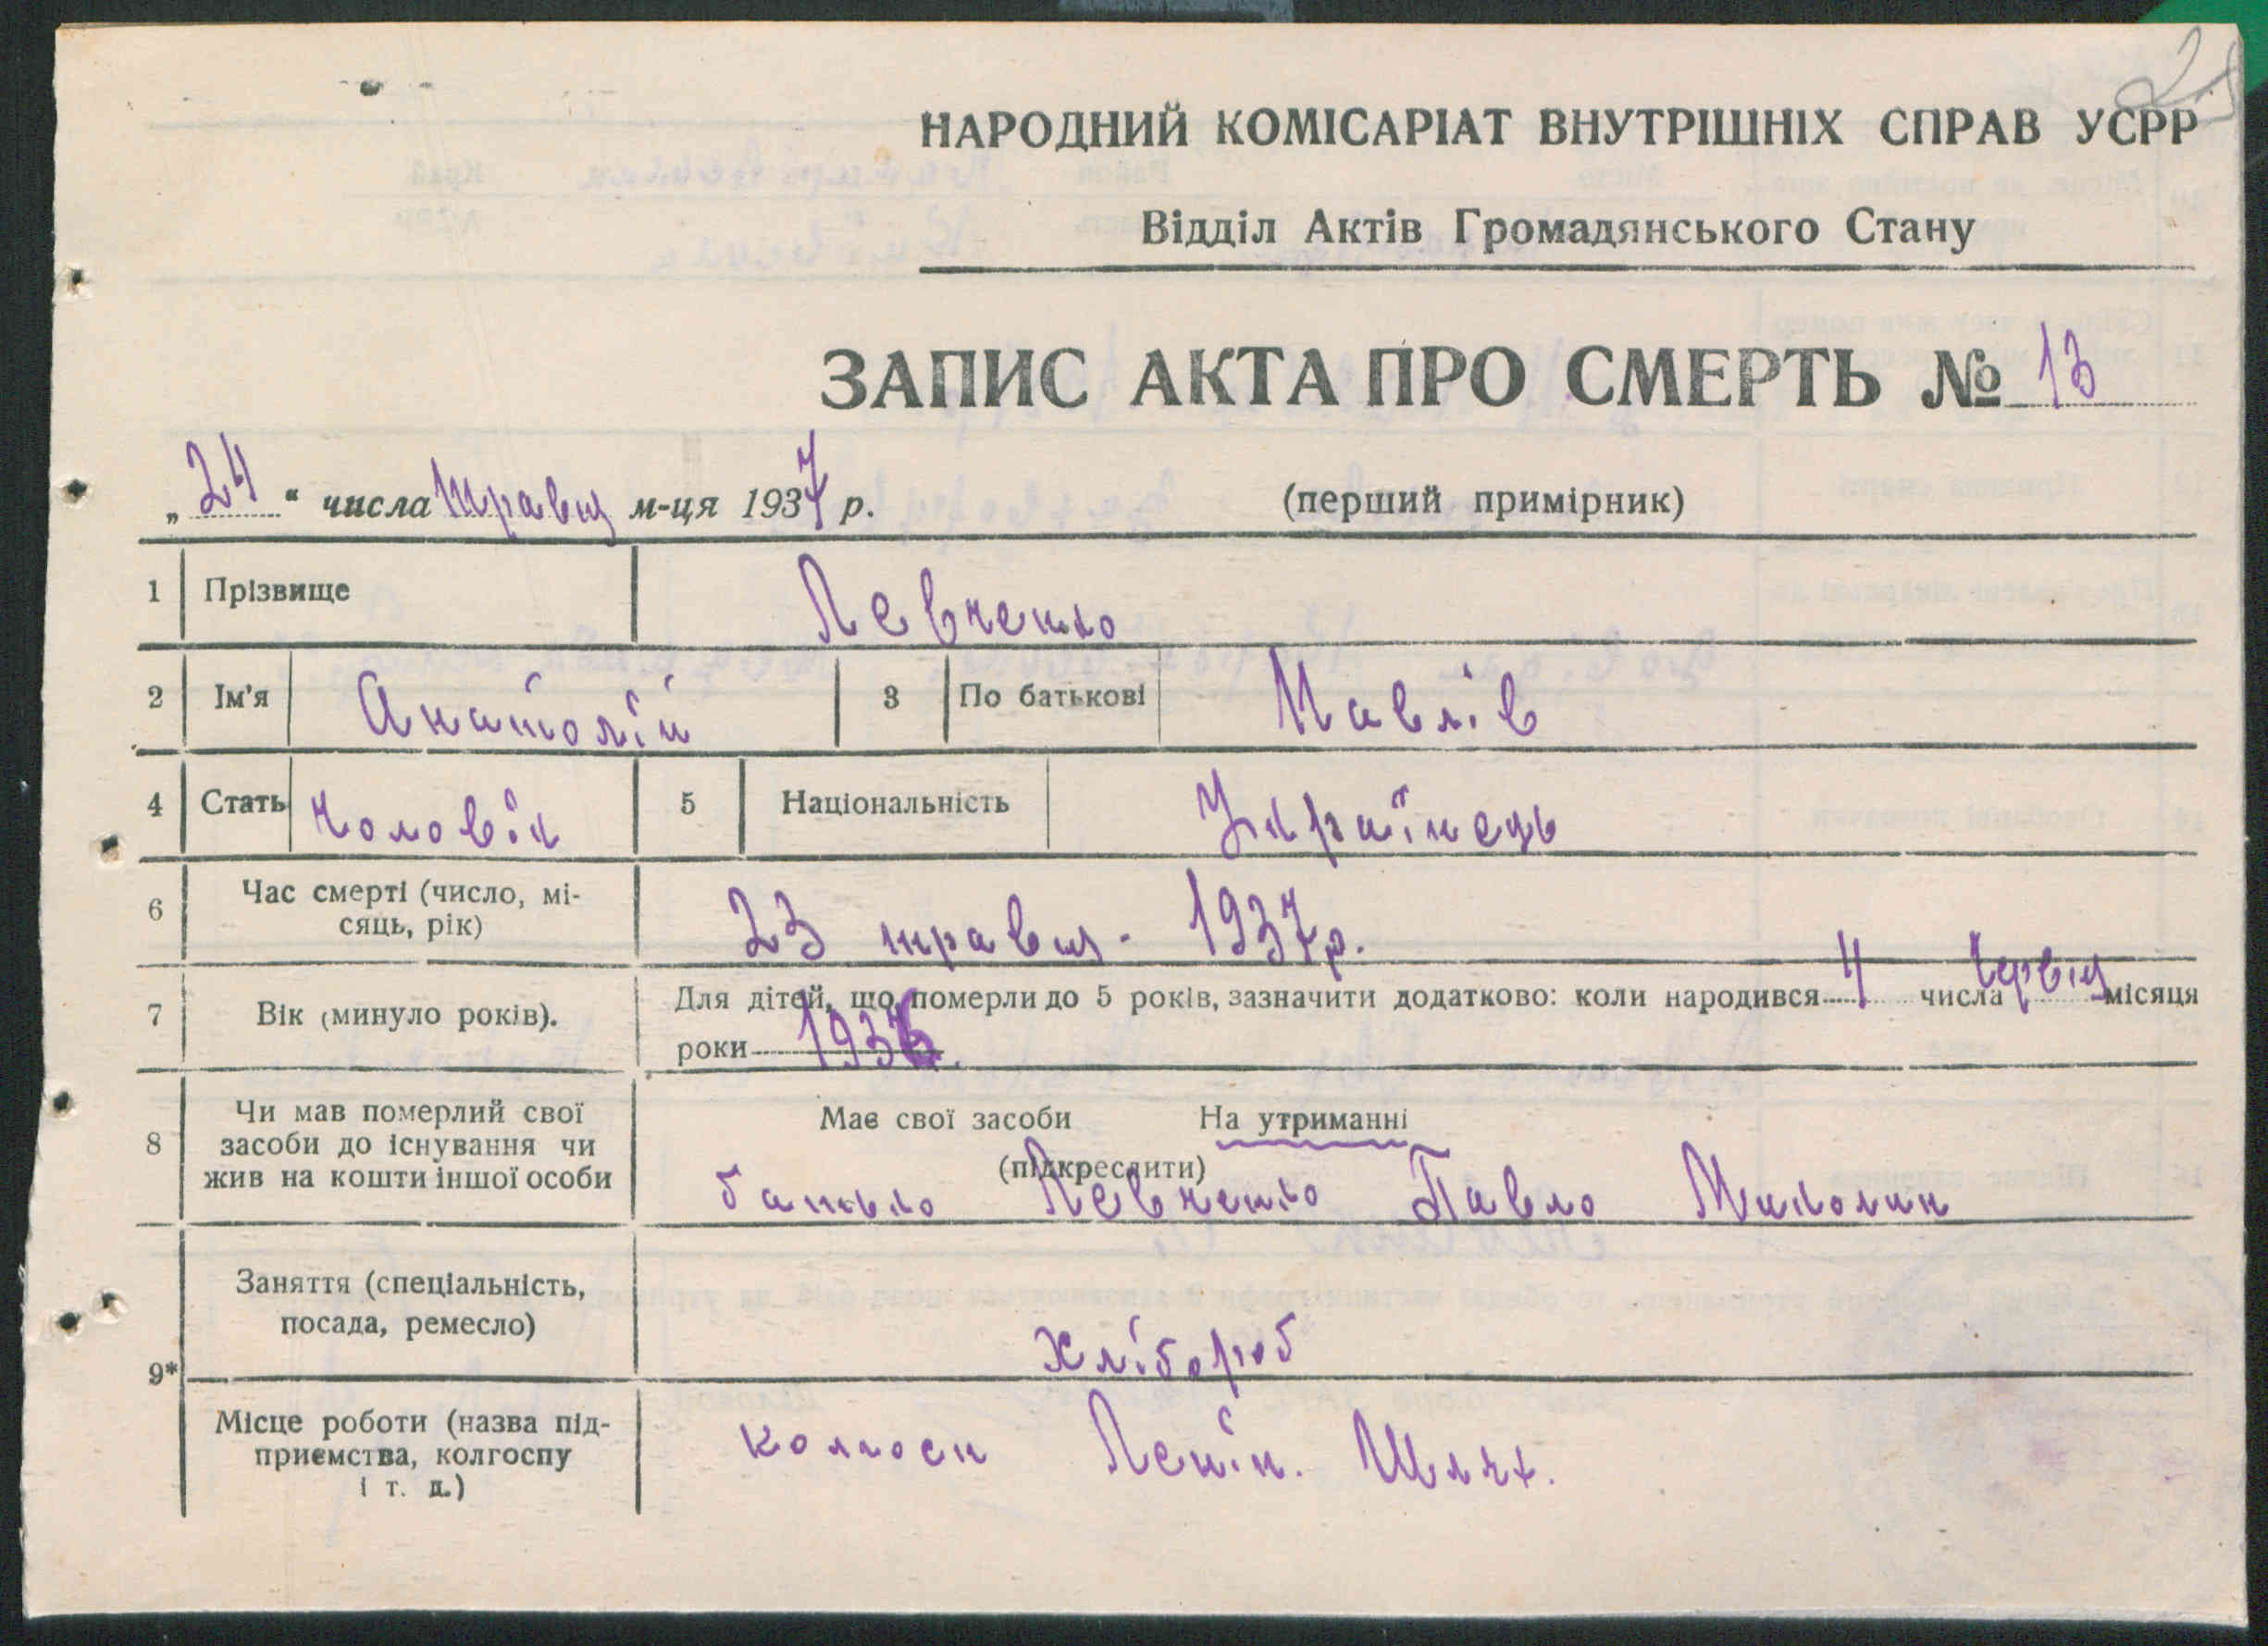 25
НАРОДНИЙ КОМІСАРІАТ ВНУТРІШНІХ СПРАВ УСРР
Відділ Актів Громадянського Стану
ЗАПИС АКТА ПРО СМЕРТЬ № 13
„24“ числа травня м-ця 1937 р. (перший примірник)
1 Прізвище Левченко
2 Ім'я Анатолій 3 По батькові Павлів
4 Стать Чоловік 5 Національність Українець
6 Час смерті (число, мі-
сяць, рік) 23 травня 1937 р.
7 Вік (минуло років). Для дітей, що померли до 5 років, зазначити додатково: коли народився 4 числа червня місяця
роки 1936.
8 Чи мав померлий свої
засоби до існування чи
жив на кошти іншої особи
Має свої засоби На утриманні
(підкреслити)
батько Левченко Павло Миколин
9* Заняття (спеціальність,
посада, ремесло) Хлібороб
Місце роботи (назва під-
приємства, колгоспу
і т. д.)
колгосп Ленін. Шлях.